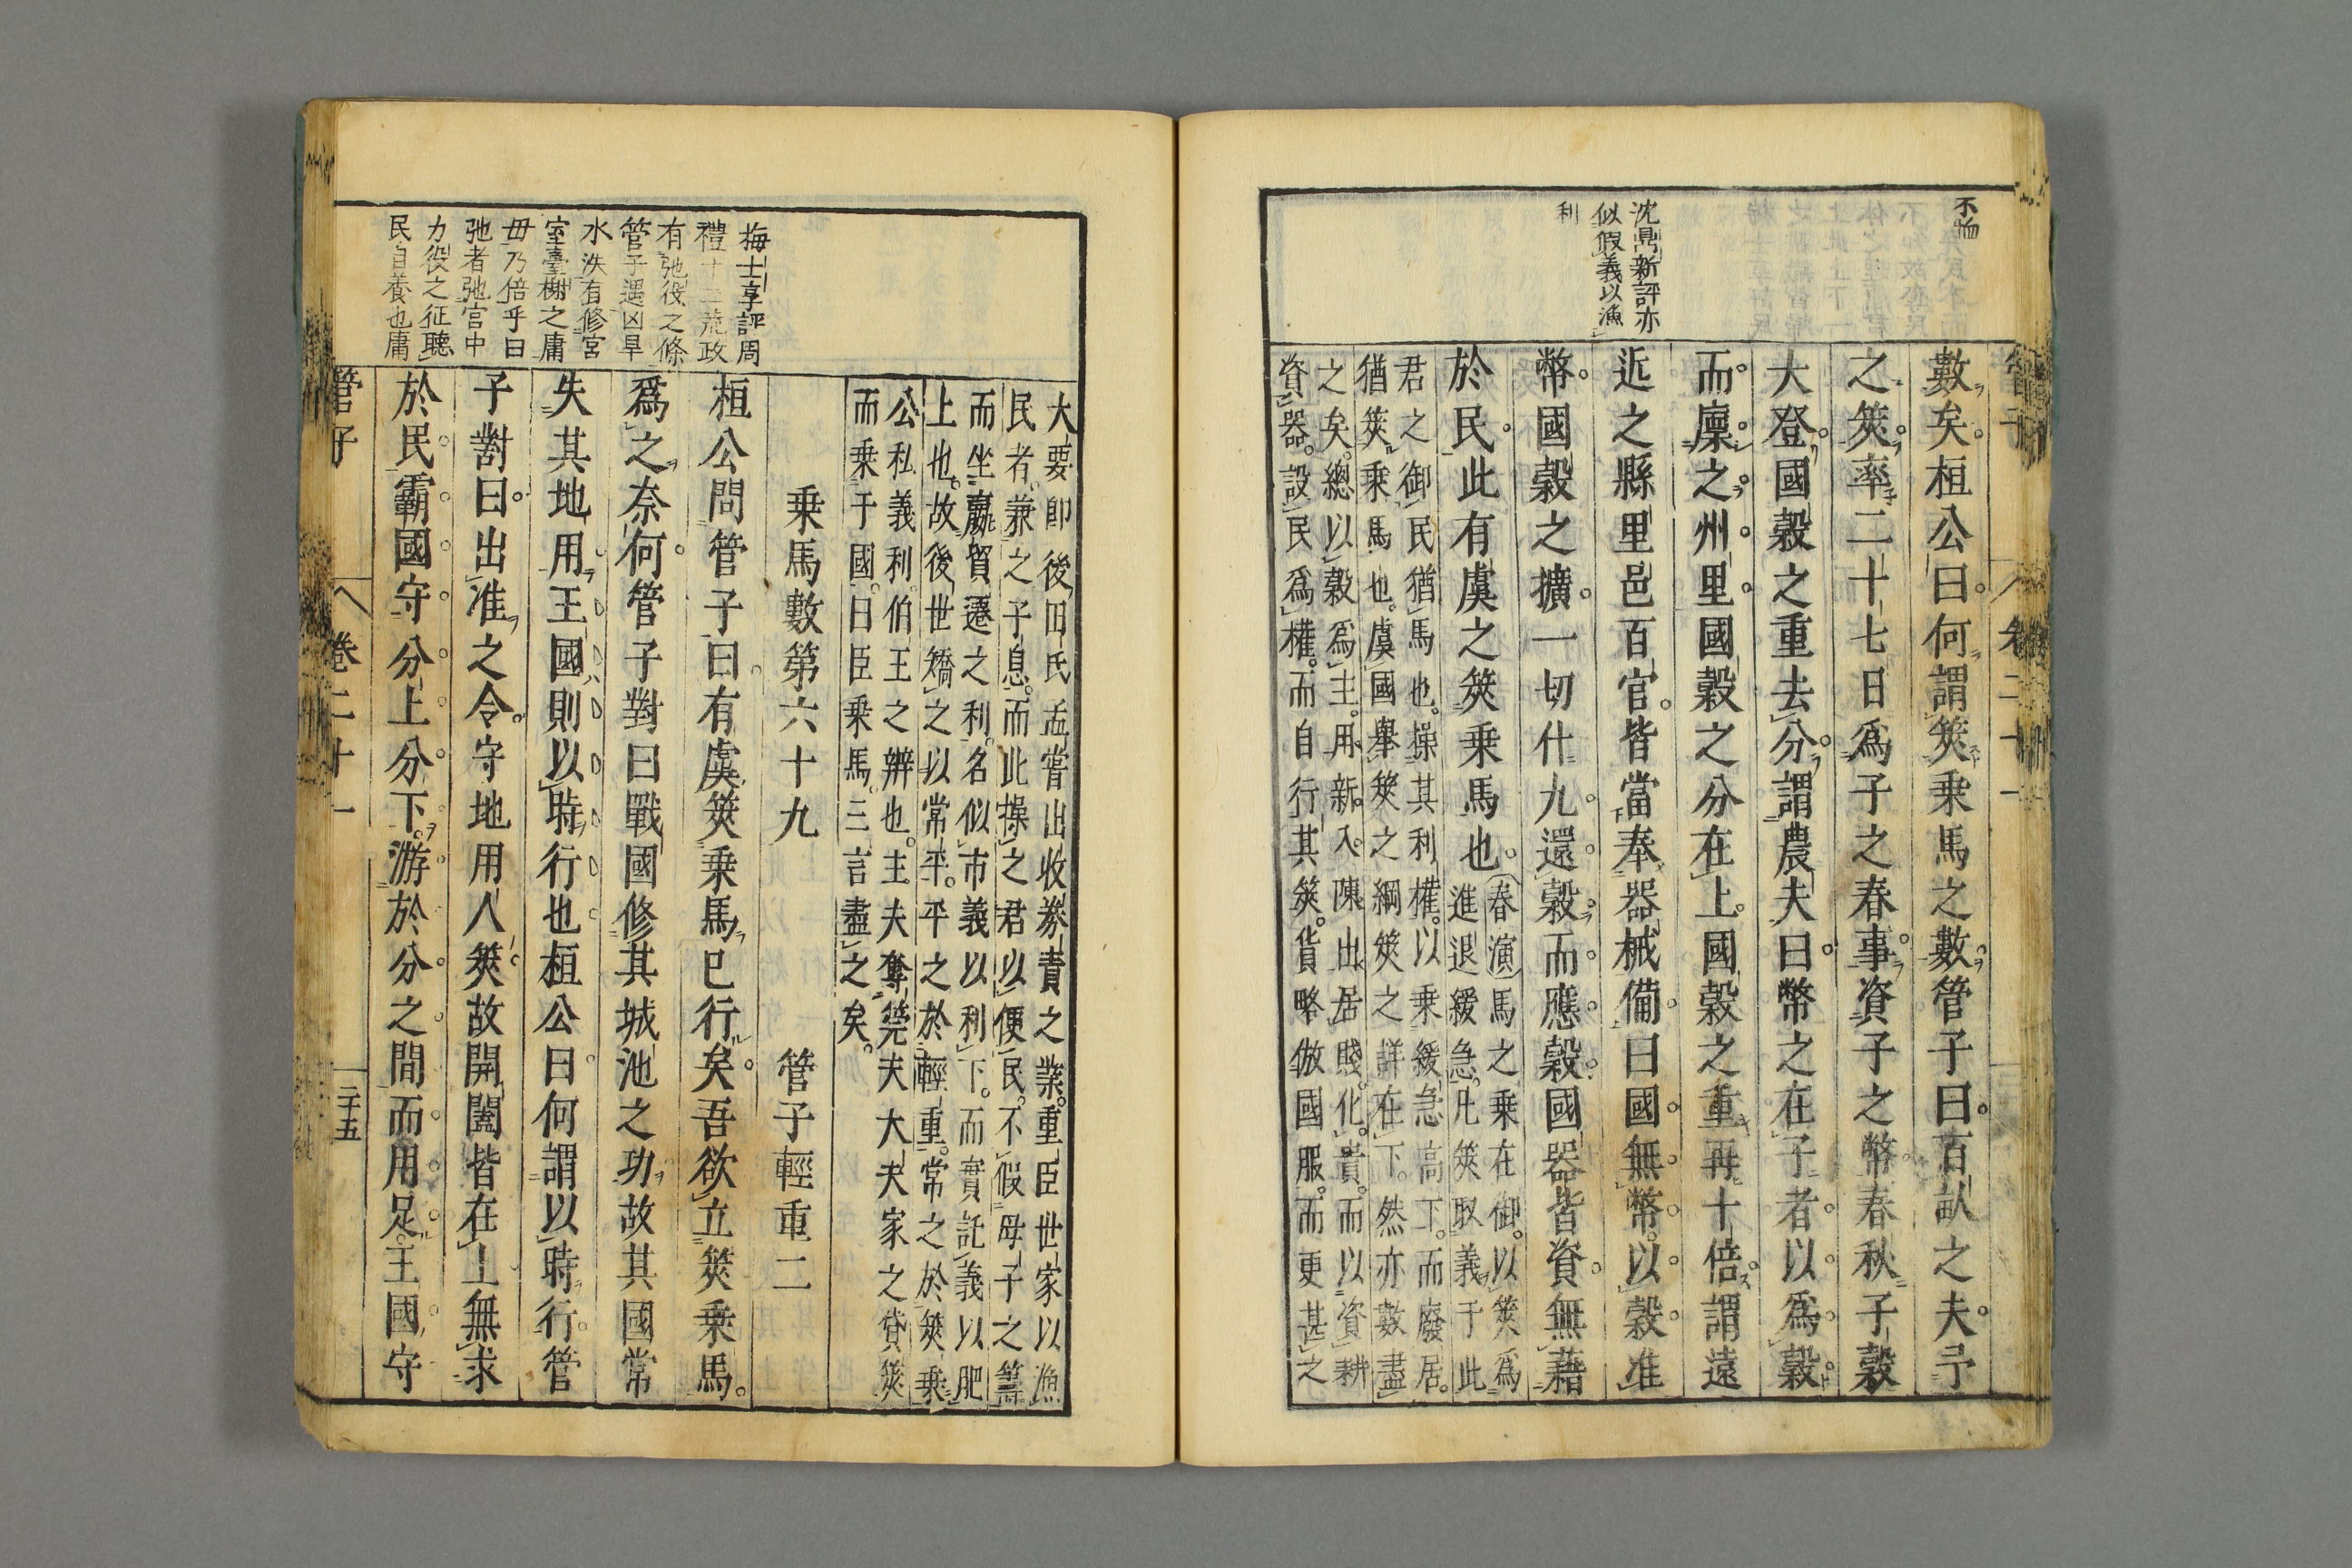 不啻
沈鼎新評亦
似假義以漁
利
數矣桓公曰何謂筴乗馬之數管子曰百畝之夫予
之筴率二十七日爲子之春事資子之幣春秋子穀
大登國穀之重去分謂農夫曰幣之在子者以爲穀
而廩之州里國穀之分在上國穀之重再十倍謂遠
近之縣里邑百官皆當奉器械備曰國無幣以穀准
幣國穀之擴一切什九還穀而應穀國器皆資無藉
於民此有虞之筴乗馬也
春演馬之乗在御以筴爲
進退緩急凡筴取義于此
君之御民猶馬也操其利權以乗緩急高下而廢居
猶筴乗馬也虞國舉筴之綱筴之詳在下然亦數盡
之矣總以穀爲主用新入陳出居賤化貴而以資耕
資器設民爲權而自行其筴貨略倣國服而更甚之
大要卽後田氏孟嘗出收券責之業重臣世家以漁
民者兼之子息而此操之君以便民不假母子之籌
而坐嬴貿遷之利名似市義以利下而實託義以肥
上也故後世矯之以常平平之於輕重常之於筴乗
公私義利伯王之辨也主夫奪筦夫大夫家之貸筴
而乗于國曰臣乗馬三言盡之矣
乗馬數第六十九
管子輕重二
桓公問管子曰有虞筴乗馬已行矣吾欲立筴乗馬
爲之奈何管子對曰戰國修其城池之功故其國常
失其地用王國則以時行也桓公曰何謂以時行管
子對曰出准之令守地用人筴故開闔皆在上無求
於民霸國守分上分下游於分之間而用足王國守
梅士享評周
禮十二荒政
有弛役之條
管子遇凶旱
水泆有修宮
室臺榭之庸
毋乃倍乎曰
弛者弛官中
力役之征聽
民自養也庸
管子
卷二十一
二十五